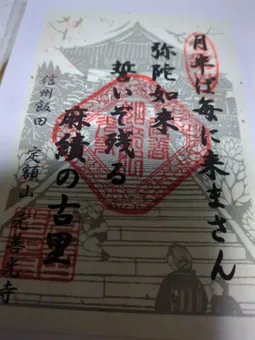 月半ば毎に来まさん
弥陀如来
誓いぞ残る
麻績の古里
信州飯田
定額山
元善光寺